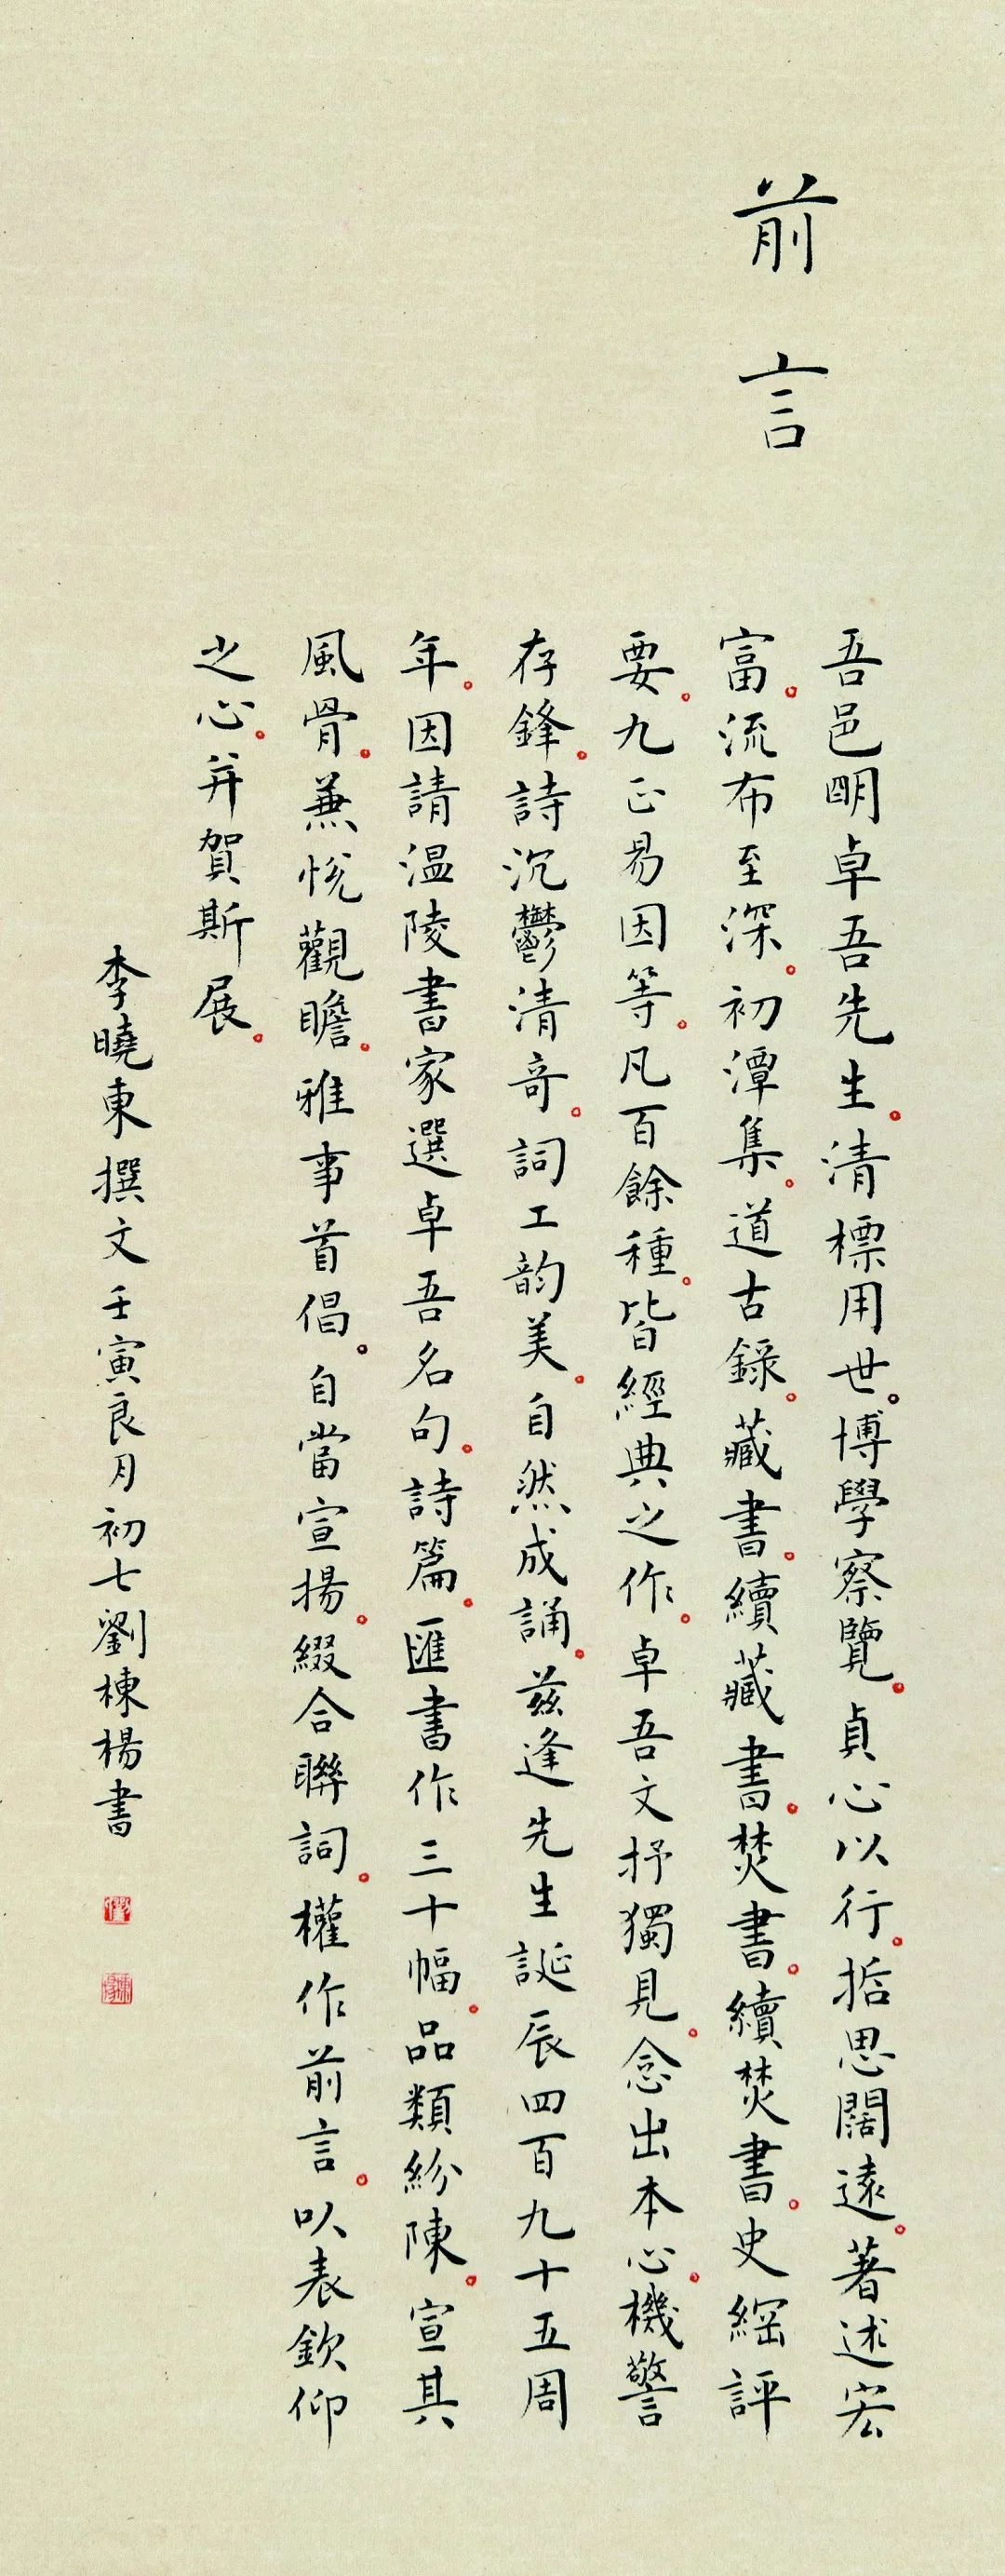 前言
吾邑明卓吾先生。清標用世。博學察覽。貞心以行。哲思闊遠。著述宏
富。流布至深。初潭集。道古錄。藏書。續藏書。焚書。續焚書。史綱評
要。九正易因等。凡百餘種。皆經典之作。卓吾文抒獨見。念出本心。機警
存鋒。詩沉鬱清奇。詞工韵美。自然成誦。兹逢先生誕辰四百九十五周
年。因請温陵書家選卓吾名句。詩篇。匯書作三十幅。品類紛陳。宣其
風骨。兼悅觀瞻。雅事首倡。自當宣揚。綴合聯詞。權作前言。以表欽仰
之心。并賀斯展。
李曉東撰文壬寅良月初七劉棟楊書